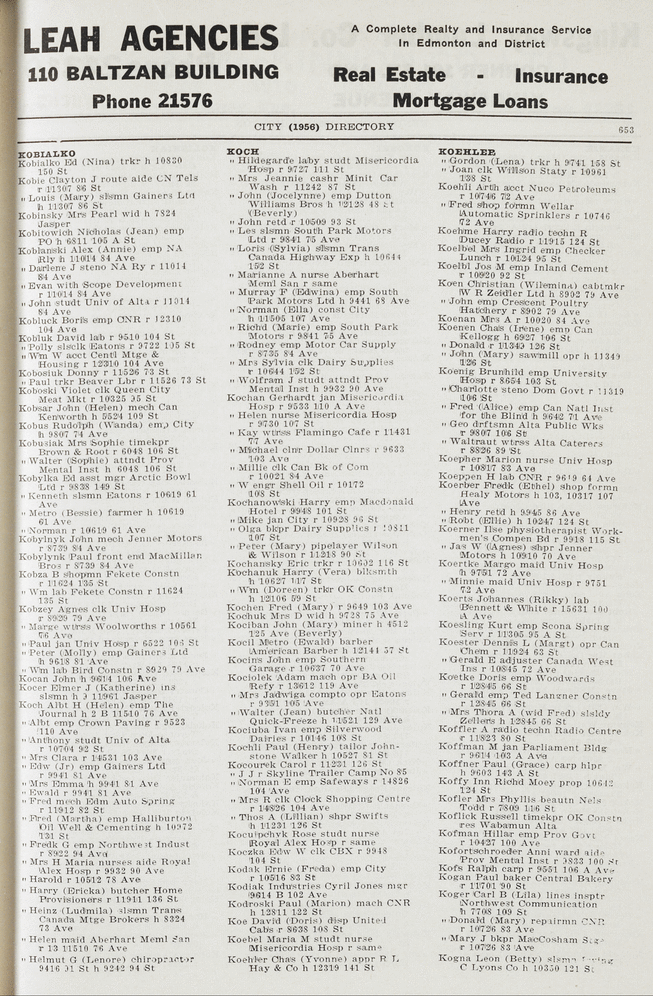 LEAH AGENCIES
110 BALTZAN BUILDING
Phone 21576
A Complete Realty and Insurance Service
In Edmonton and District
Real Estate - Insurance
Mortgage Loans
CITY (1956) DIRECTORY
653
KOBIALKO
Kobialko Ed (Nina) trkr h 10830
150 St
Kobie Clayton J route aide CN Tels
r 11307 86 St
" Louis (Mary) slsmn Gainers Ltd
h 11307 86 St
Kobinsky Mrs Pearl wid h 7824
Jasper
Kobitowich Nicholas (Jean) emp
PO h 6811 105 A St
Koblanski Alex (Annie) emp NA
Rly h 11014 84 Ave
" Darlene J steno NA Ry r 11014
84 Ave
" Evan with Scope Development
r 11014 84 Ave
" John studt Univ of Alta r 11014
84 Ave
Kobluck Boris emp CNR r 12310
104 Ave
Kobluk David lab r 9510 104 St
" Polly slsclk Eatons r 9722 105 St
" Wm W acct Centl Mtge &
Housing r 12310 104 Ave
Kobosiuk Donny r 11526 73 St
" Paul trkr Beaver Lbr r 11526 73 St
Koboski Violet clk Queen City
Meat Mkt r 10325 95 St
Kobsar John (Helen) mech Can
Kenworth h 5524 109 St
Kobus Rudolph (Wanda) emp City
h 9807 74 Ave
Kobusiak Mrs Sophie timekpr
Brown & Root r 6048 106 St
" Walter (Sophie) attndt Prov
Mental Inst h 6048 106 St
Kobylka Ed asst mgr Arctic Bowl
Ltd r 9838 149 St
" Kenneth slsmn Eatons r 10619 61
Ave
" Metro (Bessie) farmer h 10619
61 Ave
" Norman r 10619 61 Ave
Kobylnyk John mech Jenner Motors
r 8739 84 Ave
Kobylynk Paul front end MacMillan
Bros r 8739 84 Ave
Kobza B shopmn Fekete Constn
r 11624 135 St
" Wm lab Fekete Constn r 11624
135 St
Kobzey Agnes clk Univ Hosp
r 8929 79 Ave
" Marge wtrss Woolworths r 10561
76 Ave
" Paul jan Univ Hosp r 6522 106 St
" Peter (Molly) emp Gainers Ltd
h 9618 81 Ave
" Wm lab Bird Constn r 8929 79 Ave
Kocan John h 9614 106 Ave
Kocer Elmer J (Katherine) ins
slsmn h 3 11961 Jasper
Koch Albt H (Helen) emp The
Journal h 2 B 11510 76 Ave
" Albt emp Crown Paving r 9523
110 Ave
" Anthony studt Univ of Alta
r 10704 92 St
" Mrs Clara r 14531 103 Ave
" Edw (Jr) emp Gainers Ltd
r 9941 81 Ave
" Mrs Emma h 9941 81 Ave
" Ewald r 9941 81 Ave
" Fred mech Edm Auto Spring
r 11912 82 St
" Fred (Martha) emp Halliburton
Oil Well & Cementing h 10972
131 St
" Fredk G emp Northwest Indust
r 8922 94 Ave
" Mrs H Maria nurses aide Royal
Alex Hosp r 9932 90 Ave
" Harold r 10512 78 Ave
" Harry (Ericka) butcher Home
Provisioners r 11911 136 St
" Heinz (Ludmila) slsmn Trans
Canada Mtge Brokers h 8324
73 Ave
" Helen maid Aberhart Meml San
r 13 11510 76 Ave
" Helmut G (Lenore) chiropractor
9416 91 St h 9242 94 St
KOCH
" Hildegarde laby studt Misericordia
Hosp r 9727 111 St
" Mrs Jeannie cashr Minit Car
Wash r 11242 87 St
" John (Jocelynne) emp Dutton
Williams Bros h 12128 48 St
(Beverly)
" John retd r 10509 93 St
" Les slsmn South Park Motors
Ltd r 9841 75 Ave
" Loris (Sylvia) slsmn Trans
Canada Highway Exp h 10644
152 St
" Marianne A nurse Aberhart
Meml San r same
" Murray F (Edwina) emp South
Park Motors Ltd h 9441 68 Ave
" Norman (Ella) const City
h 11505 107 Ave
" Richd (Marie) emp South Park
Motors r 9841 75 Ave
" Rodney emp Motor Car Supply
r 8735 84 Ave
" Mrs Sylvia clk Dairy Supplies
r 10644 152 St
" Wolfram J studt attndt Prov
Mental Inst h 9932 90 Ave
Kochan Gerhardt jan Misericordia
Hosp r 9533 110 A Ave
" Helen nurse Misericordia Hosp
r 9730 107 St
" Kay wtrss Flamingo Cafe r 11431
77 Ave
" Michael clnr Dollar Clnrs r 9633
103 Ave
" Millie clk Can Bk of Com
r 10021 84 Ave
" W engr Shell Oil r 10172
108 St
Kochanowski Harry emp Macdonald
Hotel r 9948 101 St
" Mike jan City r 10928 96 St
" Olga bkpr Dairy Supplies r 10811
107 St
" Peter (Mary) pipelayer Wilson
& Wilson r 11218 90 St
Kochansky Eric trkr r 10602 116 St
Kochanuk Harry (Vera) blksmth
h 10627 117 St
" Wm (Doreen) trkr OK Constn
h 12106 59 St
Kochen Fred (Mary) r 9649 103 Ave
Kochuk Mrs D wid h 9738 75 Ave
Kociban John (Mary) miner h 4512
125 Ave (Beverly)
Kocil Metro (Ewald) barber
American Barber h 12144 57 St
Kocins John emp Southern
Garage r 10637 70 Ave
Kociolek Adam mach opr BA Oil
Refy r 13612 119 Ave
" Mrs Jadwiga compto opr Eatons
r 9351 105 Ave
" Walter (Jean) butcher Natl
Quick-Freeze h 11521 129 Ave
Kociuba Ivan emp Silverwood
Dairies r 10146 108 St
Kochli Paul (Henry) tailor John-
stone Walker h 10527 81 St
Kocourek Carol r 11231 126 St
" J J r Skyline Trailer Camp No 85
" Norman E emp Safeways r 14826
104 Ave
" Mrs R clk Clock Shopping Centre
r 14826 104 Ave
" Thos A (Lillian) shpr Swifts
h 11231 126 St
Kocuipchyk Rose studt nurse
Royal Alex Hosp r same
Koczka Edw W clk CBX r 9948
104 St
Kodak Ernie (Freda) emp City
r 10516 83 St
Kodiak Industries Cyril Jones mgr
9614 B 102 Ave
Kodroski Paul (Marion) mach CNR
h 12811 122 St
Koe David (Doris) disp United
Cabs r 8638 108 St
Koebel Maria M studt nurse
Misericordia Hosp r same
Koehler Chas (Yvonne) appr R L
Hay & Co h 12319 141 St
KOEHLER
" Gordon (Lena) trkr h 9741 158 St
" Joan clk Willson Staty r 10961
138 St
Koehli Arth acct Nuco Petroleums
r 10746 72 Ave
" Fred shop formn Wellar
Automatic Sprinklers r 10746
72 Ave
Koehme Harry radio techn R
Ducey Radio r 11915 124 St
Koelbel Mrs Ingrid emp Checker
Lunch r 10124 95 St
Koelbl Jos M emp Inland Cement
r 10920 92 St
Koen Christian (Wilemina) cabtmkr
W R Zeidler Ltd h 8902 79 Ave
" John emp Crescent Poultry
Hatchery r 8902 79 Ave
Koenan Mrs A r 10020 84 Ave
Koenen Chas (Irene) emp Can
Kellogg h 6927 106 St
" Donald r 11349 126 St
" John (Mary) sawmill opr h 11349
126 St
Koenig Brunhild emp University
Hosp r 8654 103 St
" Charlotte steno Dom Govt r 11319
106 St
" Fred (Alice) emp Can Natl Inst
for the Blind h 9642 71 Ave
" Geo drftsmn Alta Public Wks
r 9807 106 St
" Waltraut wtrss Alta Caterers
r 8826 89 St
Koepher Marion nurse Univ Hosp
r 10817 83 Ave
Koeppen H lab CNR r 9619 64 Ave
Koerber Fredk (Ethel) shop formn
Healy Motors h 103, 10317 107
Ave
" Henry retd h 9945 86 Ave
" Robt (Ellie) h 10247 124 St
Koerner Ilse physiotherapist Work-
men's Compen Bd r 9918 115 St
" Jas W (Agnes) shpr Jenner
Motors h 10910 70 Ave
Koertke Margo maid Univ Hosp
h 9751 72 Ave
" Minnie maid Univ Hosp r 9751
72 Ave
Koerts Johannes (Rikky) lab
Bennett & White r 15631 100
A Ave
Koesling Kurt emp Scona Spring
Serv r 11305 95 A St
Koester Dennis L (Margt) opr Can
Chem r 11924 63 St
" Gerald E adjuster Canada West
Ins r 10845 72 Ave
Koetke Doris emp Woodwards
r 12845 66 St
" Gerald emp Ted Langner Constn
r 12845 66 St
" Mrs Thora A (wid Fred) slsldy
Zellers h 12845 66 St
Koffler A radio techn Radio Centre
r 11823 80 St
Koffman M jan Parliament Bldg
r 9614 103 A Ave
Koffner Paul (Grace) carp hlpr
h 9603 143 A St
Koffy Inn Richd Moey prop 10642
124 St
Kofler Mrs Phyllis beautn Nels
Todd r 7809 116 St
Koflick Russell timekpr OK Constn
res Wabamun Alta
Kofman Hillar emp Prov Govt
r 10427 100 Ave
Kofortschroeder Anni ward aide
Prov Mental Inst r 9833 100 St
Kofs Ralph carp r 9551 106 A Ave
Kogan Paul baker Central Bakery
r 11701 90 St
Koger Carl B (Lila) lines insptr
Northwest Communication
h 7708 109 St
" Donald (Mary) repairmn CNR
r 10726 83 Ave
" Mary J bkpr MacCosham
r 10726 83 Ave
Kogna Leon (Betty) slsmn
C Lyons Co h 10350 121 St